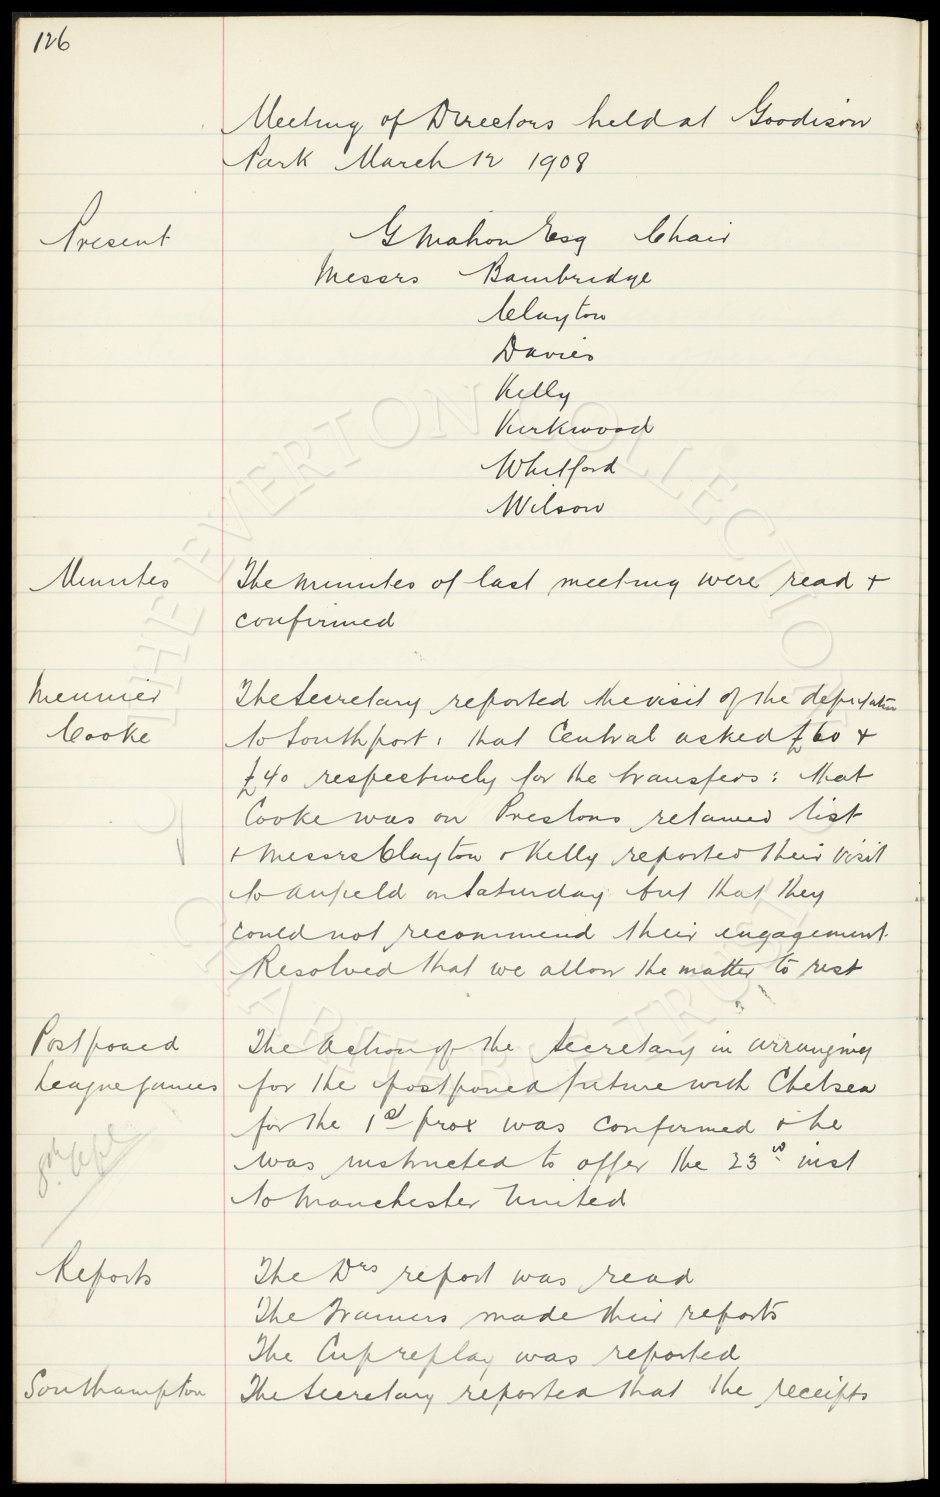 126
Meeting of Directors held at Goodison
Park March 12 1908
Present
G Mahon Esq Chair
Messrs Bainbridge
Clayton
Davies
Kelly
Kirkwood
Whitford
Wilson
Minutes
The minutes of last meeting were read +
confirmed
Meunier
Cooke
The Secretary reported the visit of the deputation
to Southport: that Central asked £60 +
£40 respectively for the transfers: that
Cooke was on Prestons retained list
+ Messrs Clayton + Kelly reported their visit
to Anfield on Saturday but that they
could not recommend their engagement.
Resolved that we allow the matter to rest
Postponed
League games
8th Apl
The action of the Secretary in arranging
for the postponed fixture with Chelsea
for the 1st prox was confirmed + he
was instructed to offer the 23rd inst
to Manchester United
Reports
The Drs report was read
The Trainers made their reports
The Cup replay was reported
Southampton
The Secretary reported that the receipts
© THE EVERTON COLLECTION CHARITABLE TRUST